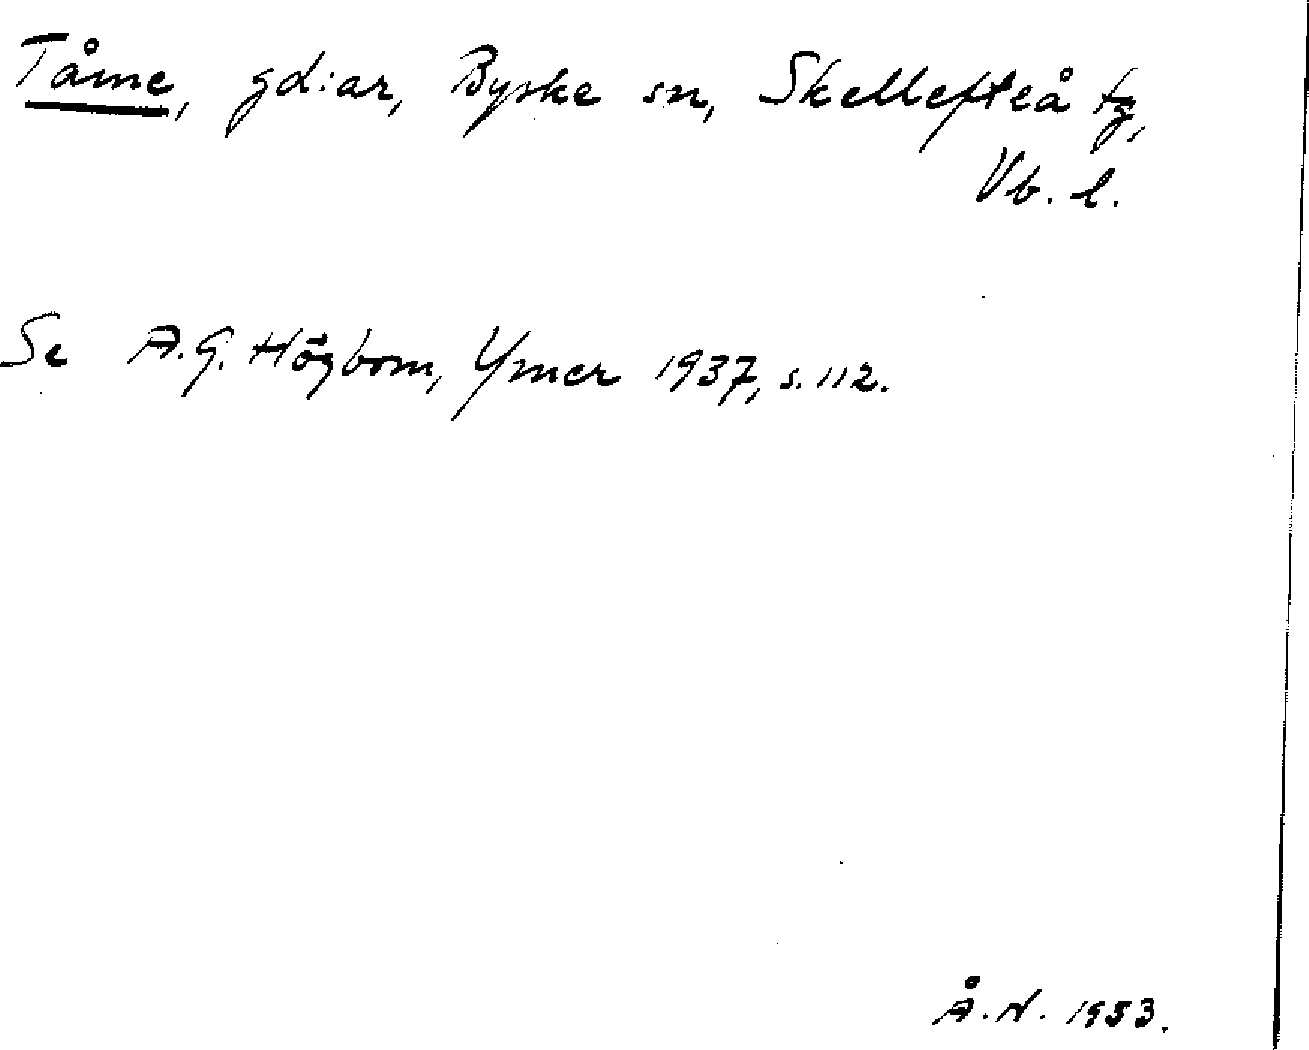 Tåme, gd:ar, Byske sn, Skellefteå tg,
Vb. l.
Se A.G. Högbom, Ymer 1937, s. 112.
Å.N. 1953.